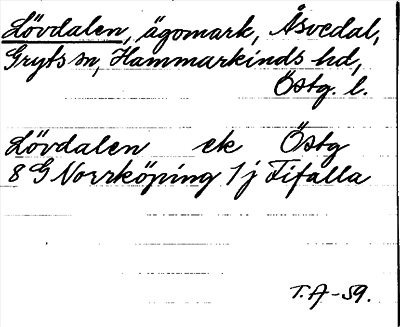 Lövdalen, ägomark, Åsvedal,
Gryts sn, Hammarkinds hd,
Östg. l.
Lövdalen ek Östg
8 G Norrköping 1 j Fifalla
T.A-59.